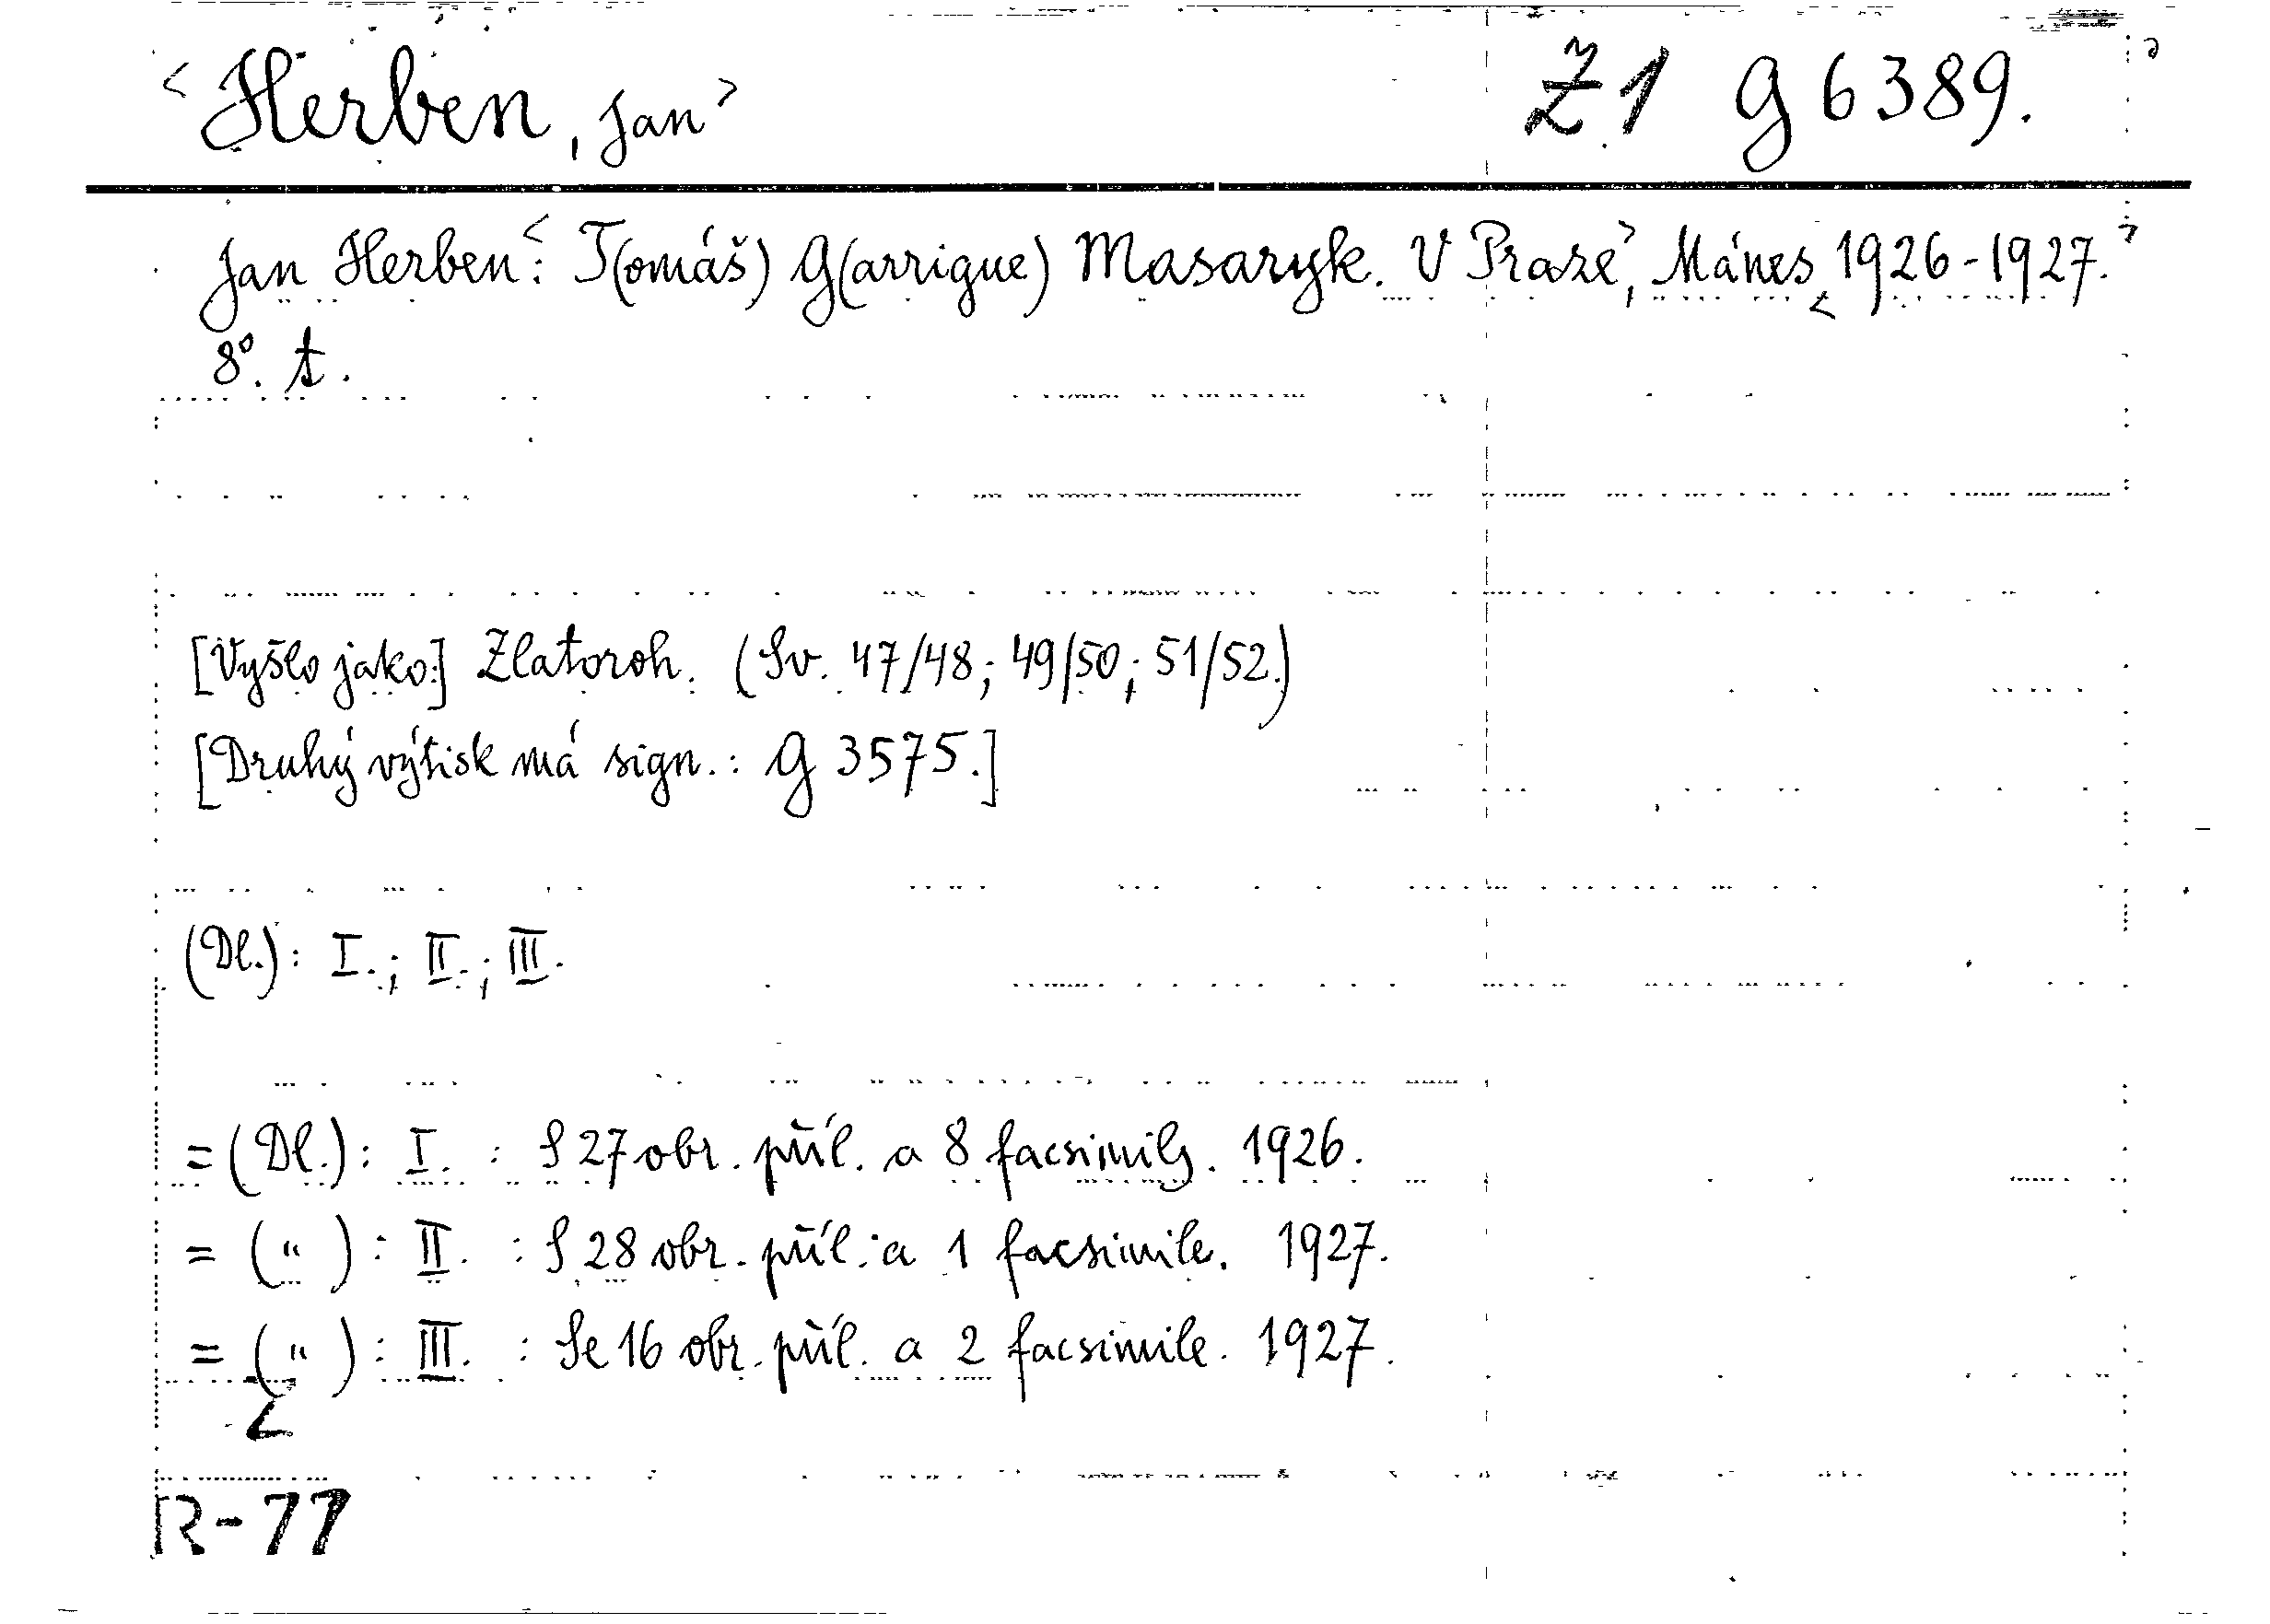 <Herben, Jan> Z 1 g 6389.
Jan Herben<: T(omáš) G(arrigue) Masaryk. V Praze>, Mánes <1926-1927.>
8°. t.
[Vyšlo jako:] Zlatoroh. (Sv. 47/48; 49/50; 51/52.)
[Druhý výtisk má sign.: g 3575.]
(Dl.): I.; II.; III.
= (Dl.): I. : S 27 obr. příl. a 8 facsimily. 1926.
= („): II. : S 28 obr. příl. a 1 facsimile. 1927.
= („): III. : Se 16 obr. příl. a 2 facsimile. 1927.
R-77